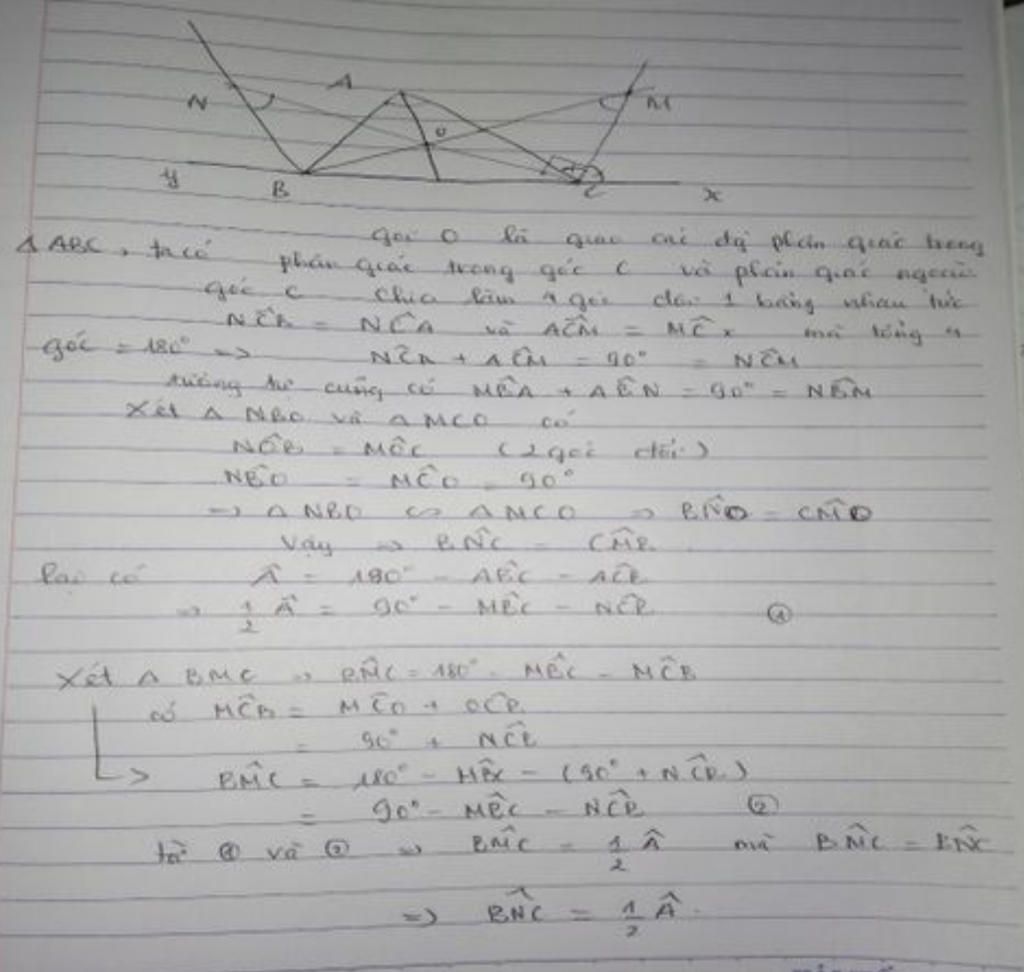 A
N
M
O
y
B
C
x
Δ ABC, ta có gọi O là giao các đg phân giác trong
phân giác trong góc C và phân giác ngoài
góc C chia làm 4 góc đôi 1 bằng nhau tức
NĈB = NĈA và AĈM = MĈx mà tổng 4
góc = 180° => NĈA + AĈM = 90° = NĈM
tương tự cũng có MB̂A + AB̂N = 90° = NB̂M
Xét Δ NBO và Δ MCO có
NÔB = MÔC (2 góc đối)
NB̂O = MĈO = 90°
=> Δ NBO ∽ Δ MCO => BN̂O = CM̂O
Vậy => BN̂C = CM̂B
lại có Â = 180° - AB̂C - AĈB
=> 1/2 Â = 90° - MB̂C - NĈB ①
Xét Δ BMC => BM̂C = 180° - MB̂C - MĈB
có MĈB = MĈO + OĈB
= 90° + NĈB
-> BM̂C = 180° - MB̂C - (90° + NĈB)
= 90° - MB̂C - NĈB ②
từ ① và ② => BM̂C = 1/2 Â mà BM̂C = BN̂C
=> BN̂C = 1/2 Â.